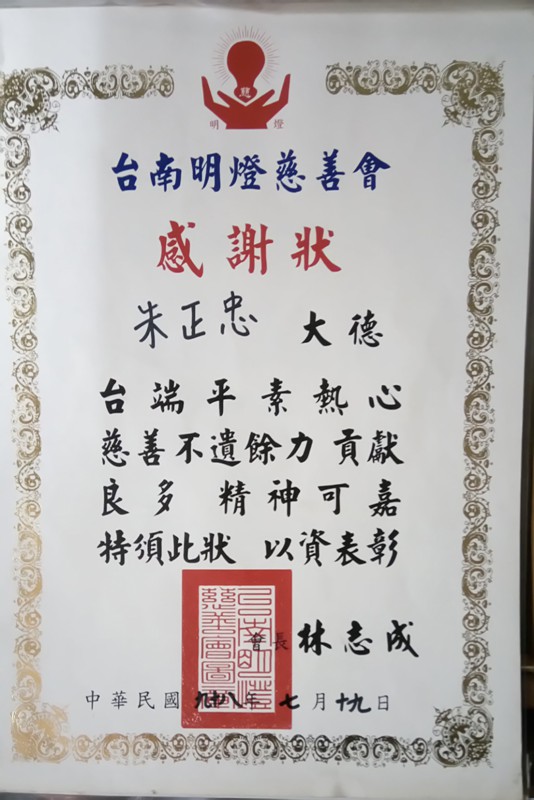 慈
明 燈
台南明燈慈善會
感謝狀
朱正忠 大德
台端平素熱心
慈善不遺餘力 貢獻
良多 精神可嘉
特須此狀 以資表彰
台南明燈
慈善會圖
會長 林志成
中華民國 九十八年 七月十九日